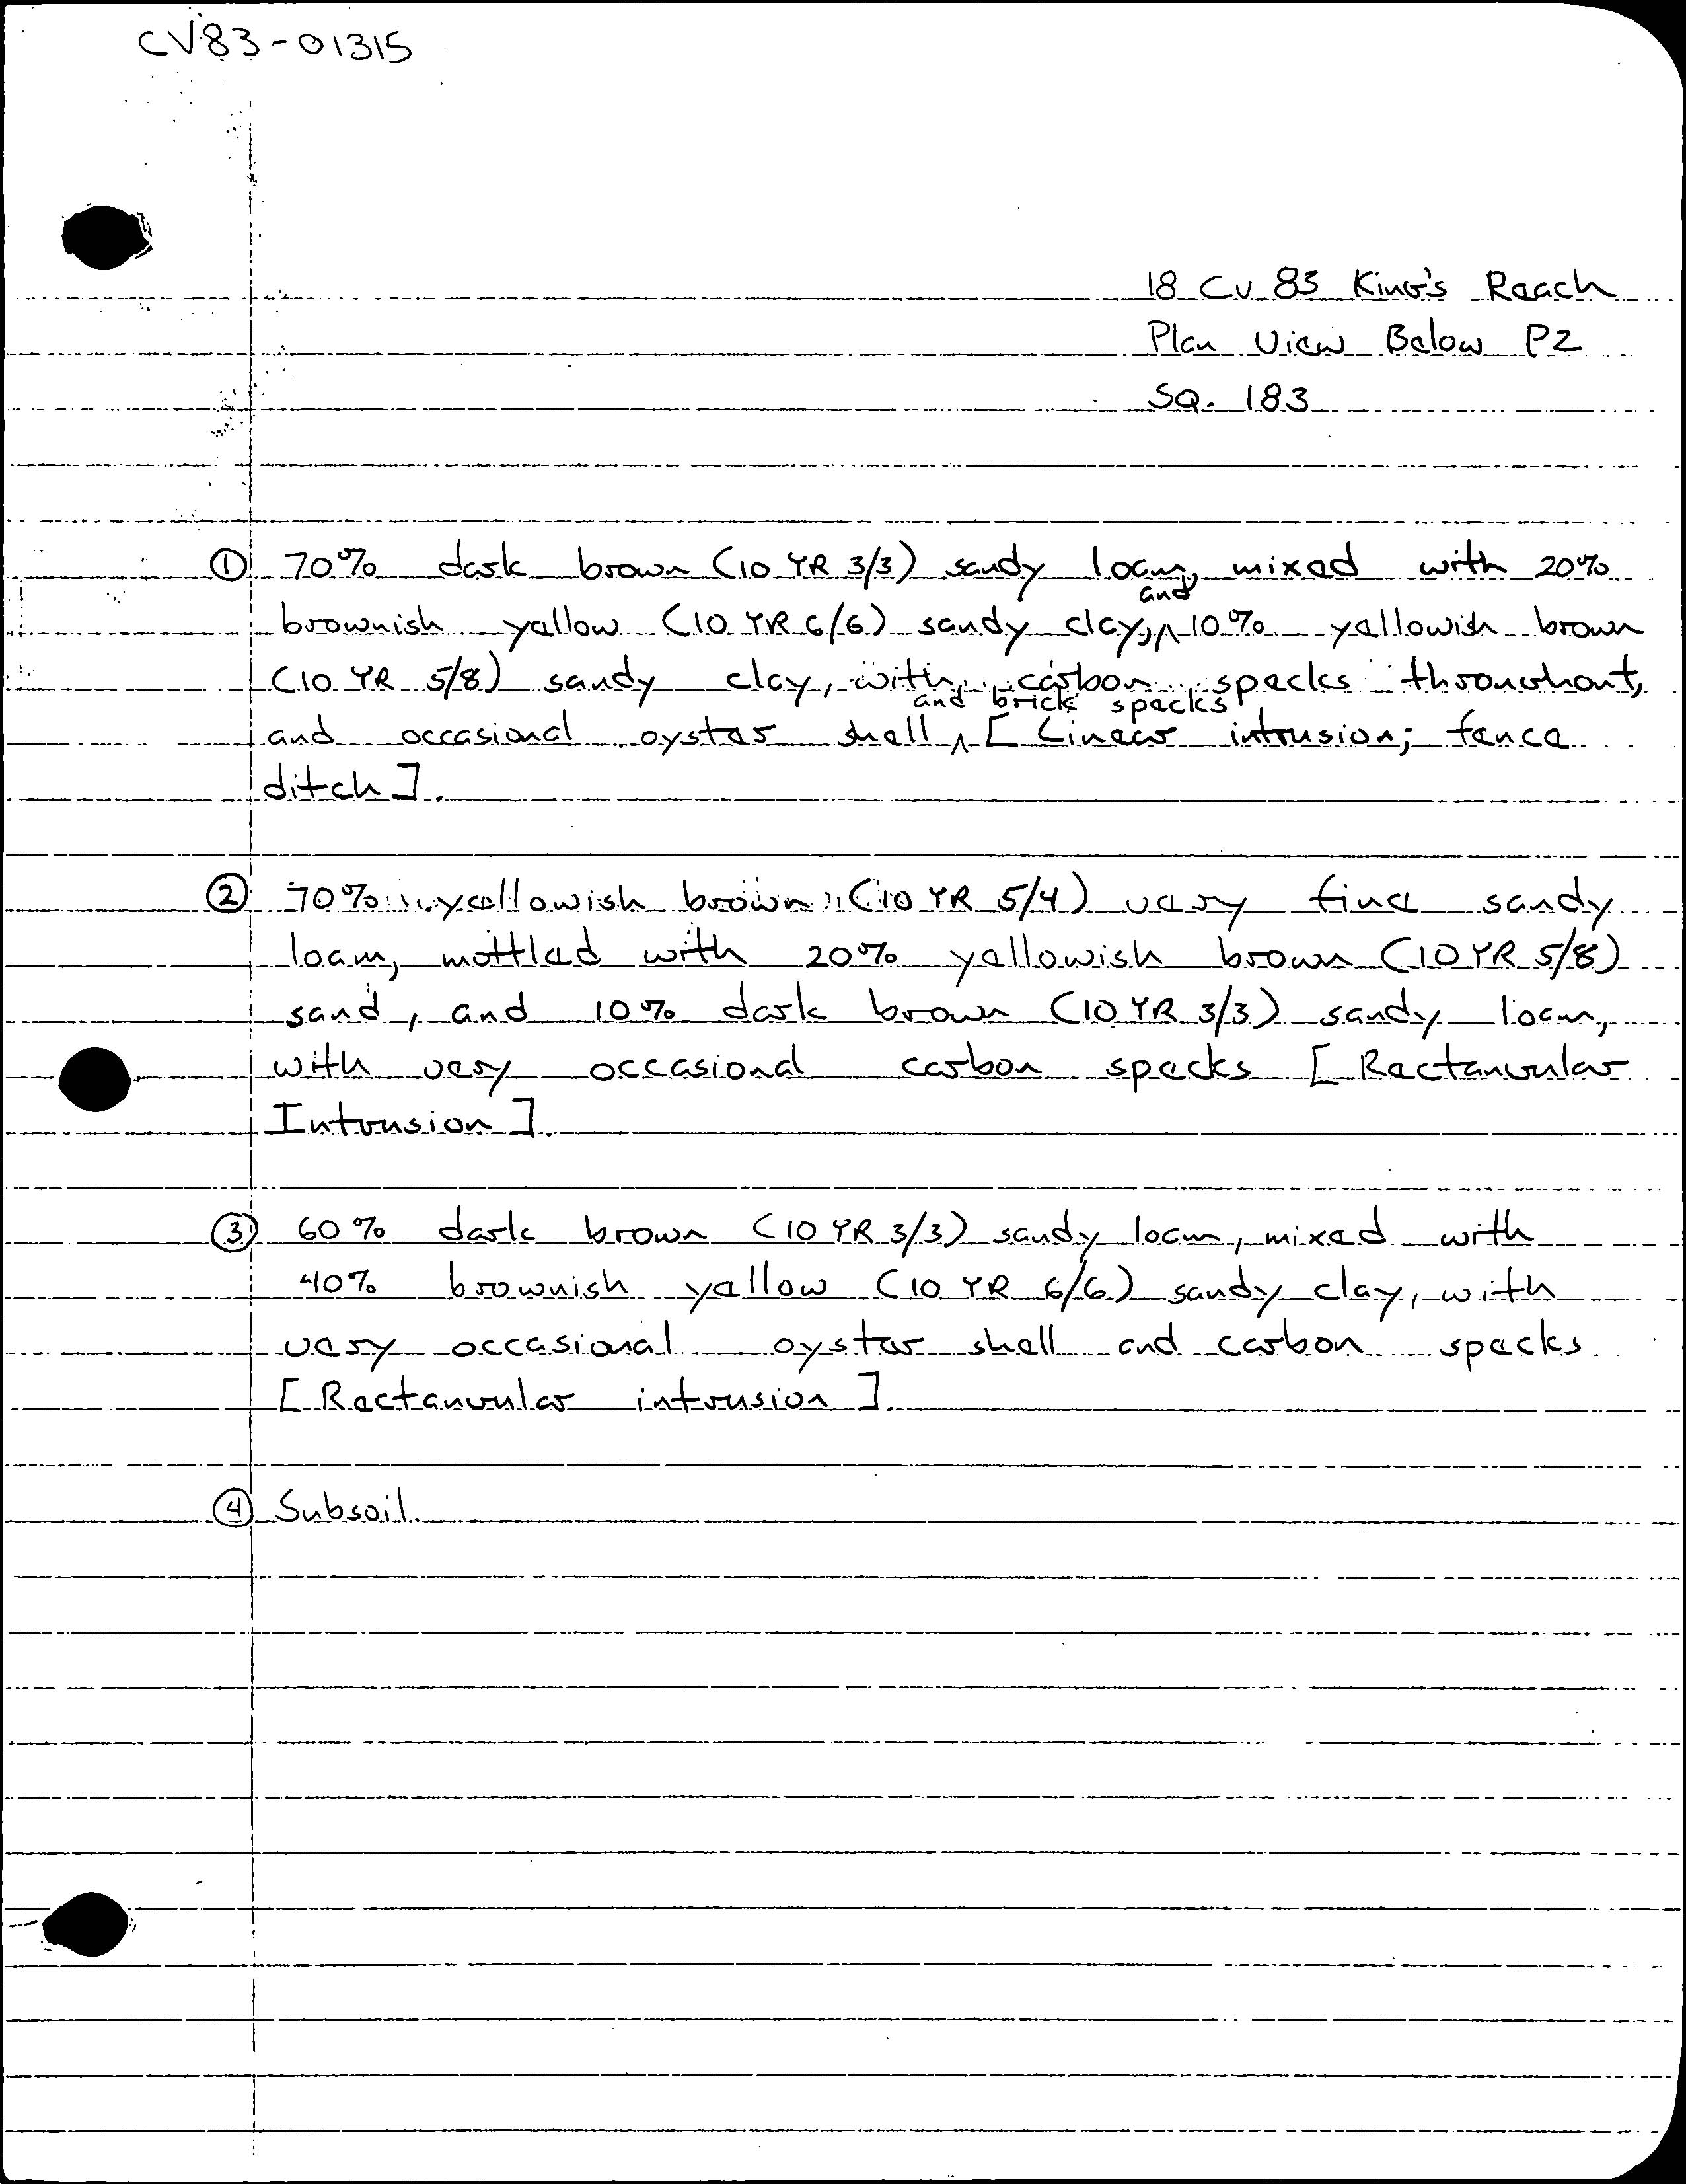 CV83-01315
18 CV 83 King's Reach
Plan View Below P2
SQ. 183
① 70% dark brown (10 YR 3/3) sandy loam, mixed with 20%
brownish yellow (10 YR 6/6) sandy clay, and 10% yellowish brown
(10 YR 5/8) sandy clay, with carbon specks throughout,
and occasional oyster shell and brick specks [Linear intrusion; fence
ditch].
② 70% yellowish brown (10 YR 5/4) very fine sandy
loam, mottled with 20% yellowish brown (10 YR 5/8)
sand, and 10% dark brown (10 YR 3/3) sandy loam,
with very occasional carbon specks [Rectangular
Intrusion].
③ 60% dark brown (10 YR 3/3) sandy loam, mixed with
40% brownish yellow (10 YR 6/6) sandy clay, with
very occasional oyster shell and carbon specks
[Rectangular intrusion].
④ Subsoil.